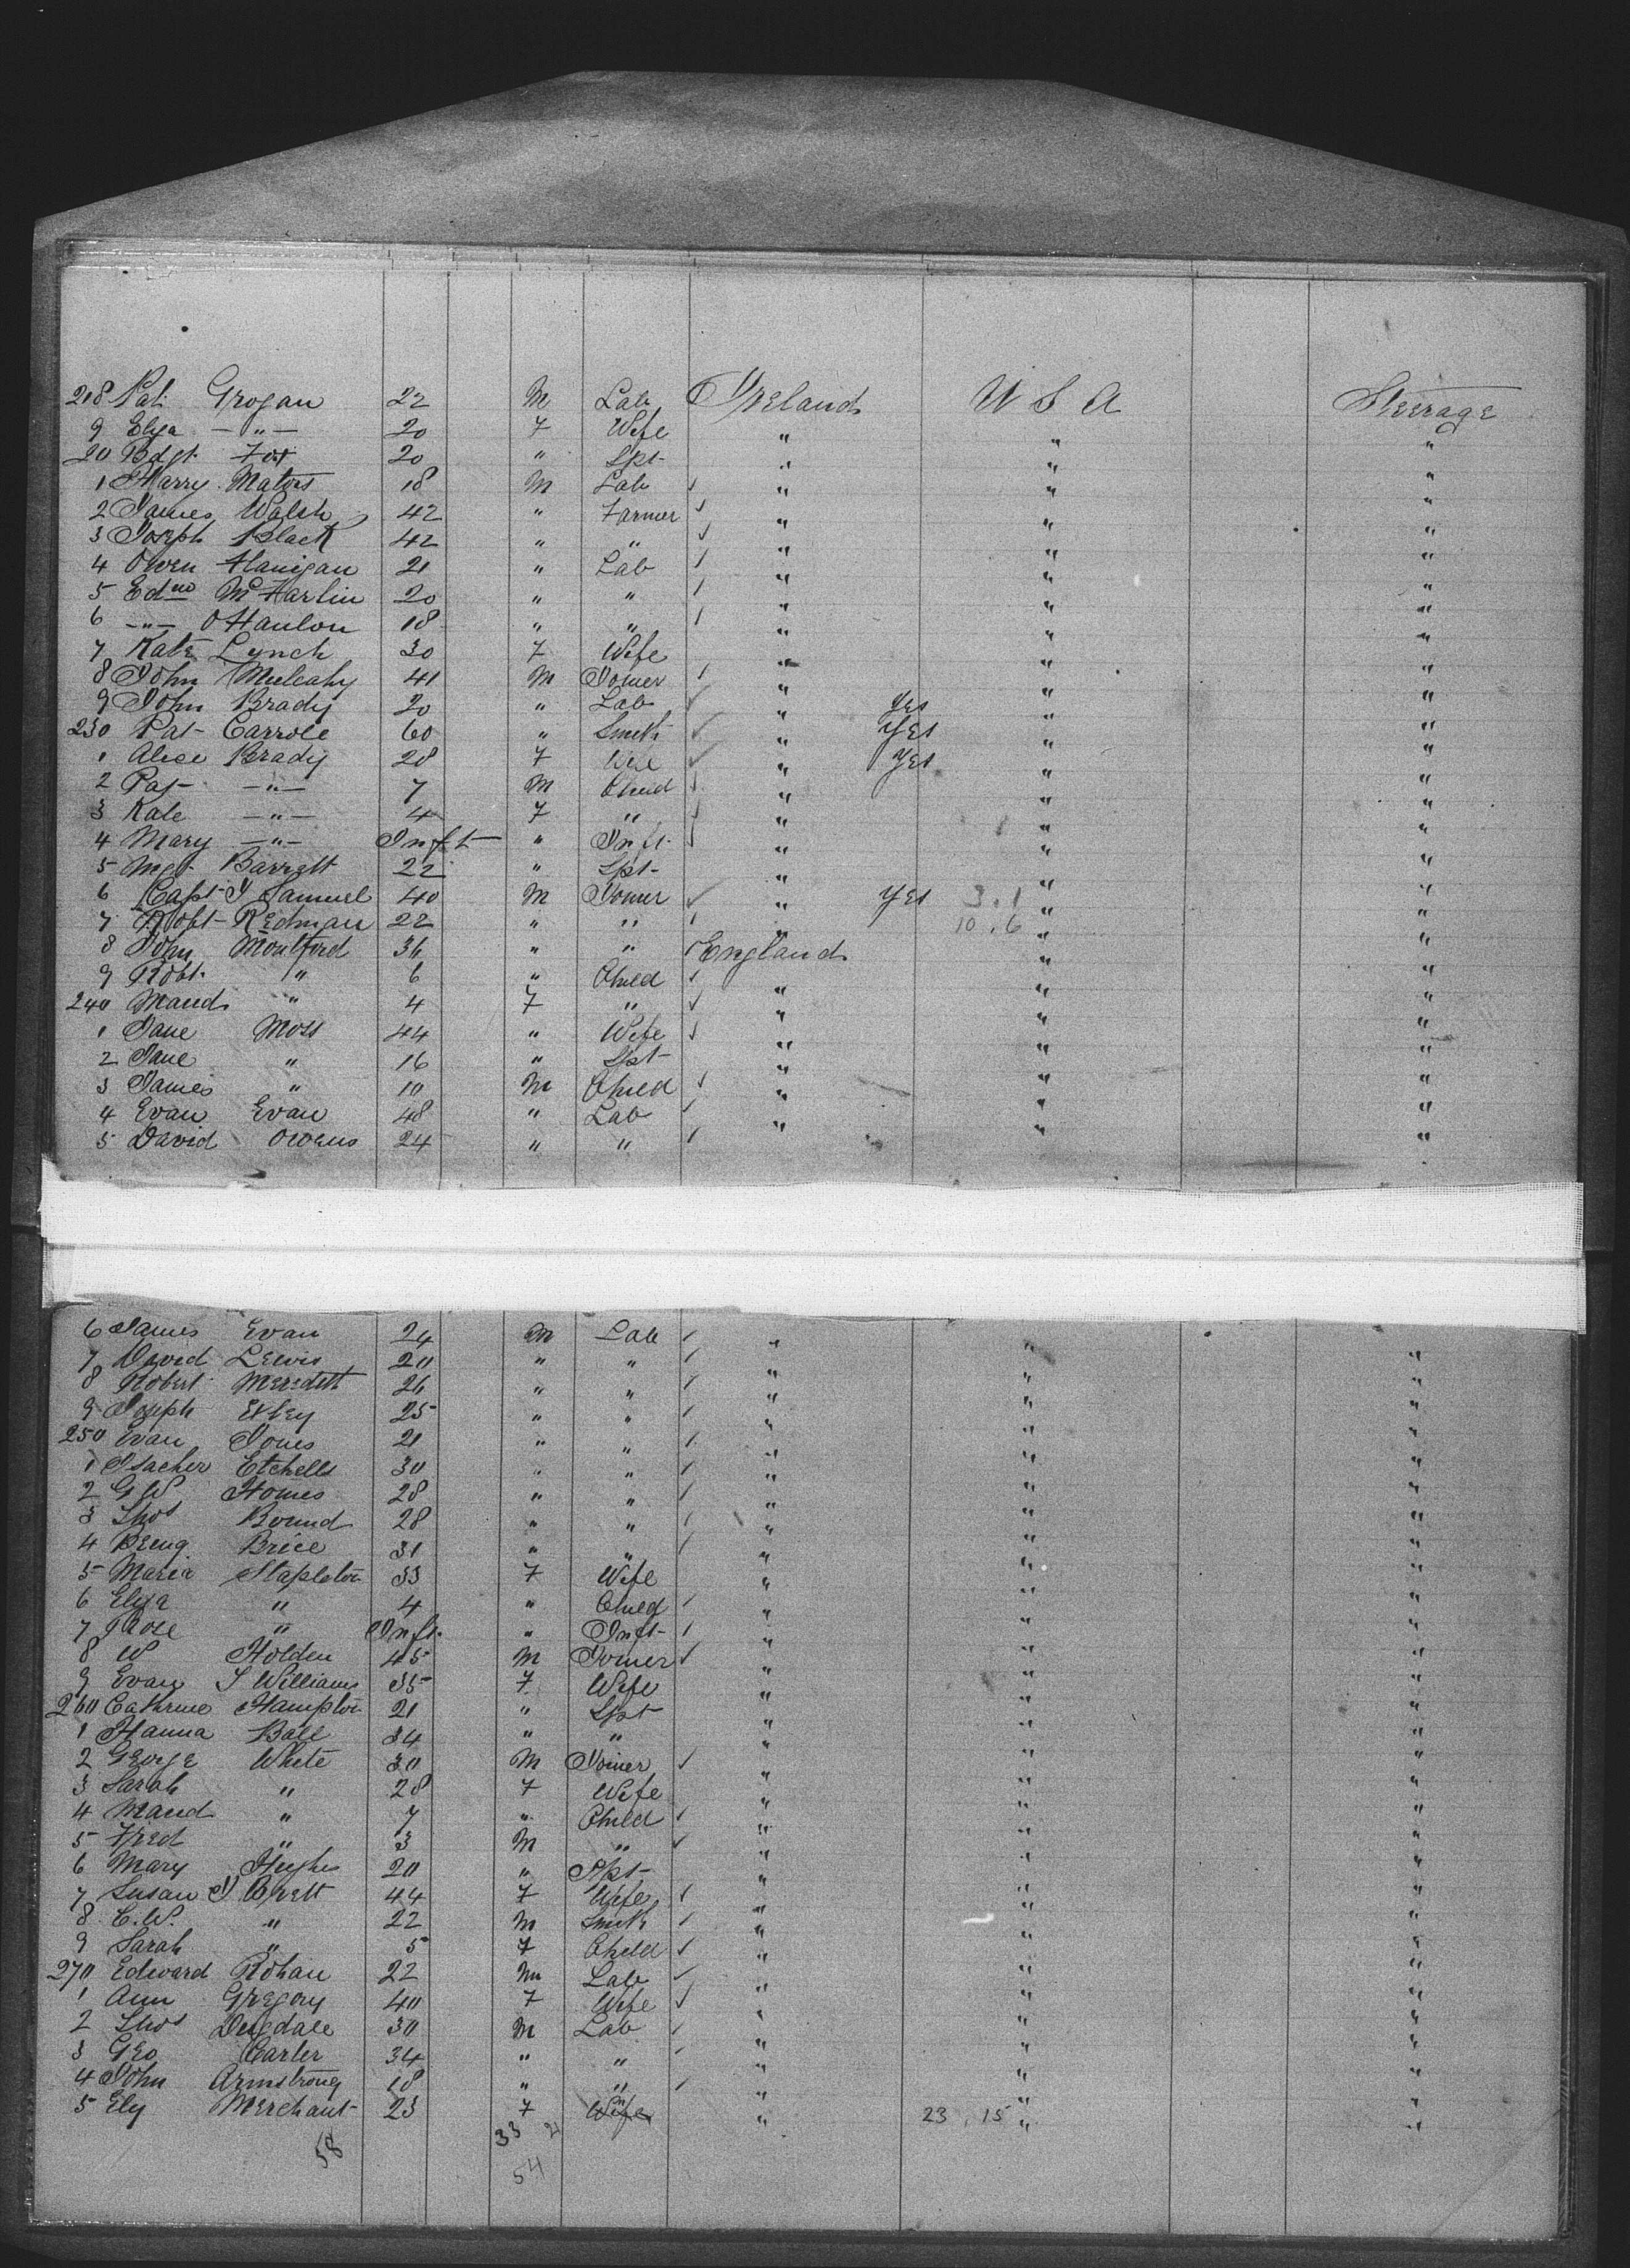 218 Pat Grogan 22 M Lab Ireland U S A Steerage
9 Elza — " — 20 F Wife " " "
20 Bdgt Fox 20 " Spt " " "
1 Harry Mators 18 M Lab ✓ " " "
2 James Walsh 42 " Farmer ✓ " " "
3 Joseph Black 42 " " ✓ " " "
4 Owen Hanigan 21 " Lab ✓ " " "
5 Edwd McHarlin 20 " " ✓ " " "
6 — " — O'Hanlon 18 " " ✓ " " "
7 Kate Lynch 30 F Wife " " "
8 John Mulcahy 41 M Joiner ✓ " " "
9 John Brady 20 " Lab ✓ " Yes " "
230 Pat Carrole 60 " Smith ✓ " Yes " "
1 Alice Brady 28 F Wife ✓ " Yes " "
2 Pat — " — 7 M Child ✓ " " "
3 Kate — " — 4 F " ✓ " " "
4 Mary — " — Inft " Inft ✓ " " "
5 Mgt Barrett 22 " Spt " " "
6 Capt J Samuel 40 M Joiner ✓ " Yes 3.1 " "
7 Robt Redman 22 " " ✓ " 10.6 " "
8 John Moulford 36 " " ✓ England " "
9 Robt " 6 " Child ✓ " " "
240 Maud " 4 F " ✓ " " "
1 Jane Moss 44 " Wife ✓ " " "
2 Jane " 16 " Spt " " "
3 James " 10 M Child ✓ " " "
4 Evan Evan 48 " Lab ✓ " " "
5 David Owens 24 " " ✓ " " "
6 James Evan 24 M Lab ✓ " " "
7 David Lewis 20 " " ✓ " " "
8 Robert Meredith 26 " " ✓ " " "
9 Joseph Exley 25 " " ✓ " " "
250 Evan Jones 21 " " ✓ " " "
1 Isacher Etchells 30 " " ✓ " " "
2 G W Homes 28 " " ✓ " " "
3 Thos Bound 28 " " ✓ " " "
4 Benj Brice 31 " " ✓ " " "
5 Maria Stapleton 33 F Wife " " "
6 Elza " 4 " Child ✓ " " "
7 Rose " Inft " Inft ✓ " " "
8 W Holden 45 M Joiner ✓ " " "
9 Evan S Williams 35 F Wife " " "
260 Cathrine Hampton 21 " Spt " " "
1 Hanna Ball 34 " " " " "
2 George White 30 M Joiner ✓ " " "
3 Sarah " 28 F Wife " " "
4 Maud " 7 " Child ✓ " " "
5 Fred " 3 M " ✓ " " "
6 Mary Hughes 20 " Spt " " "
7 Susan J Brett 44 F Wife ✓ " " "
8 C.W. " 22 M Smith ✓ " " "
9 Sarah " 5 F Child ✓ " " "
270 Edward Rohan 22 M Lab ✓ " " "
1 Ann Gregory 40 F Wife ✓ " " "
2 Thos Dugdale 30 M Lab ✓ " " "
3 Geo Carter 34 " " ✓ " " "
4 John Armstrong 18 " " ✓ " " "
5 Ely Merchant 23 F Wife " 23.15 " "
58 33 21
54